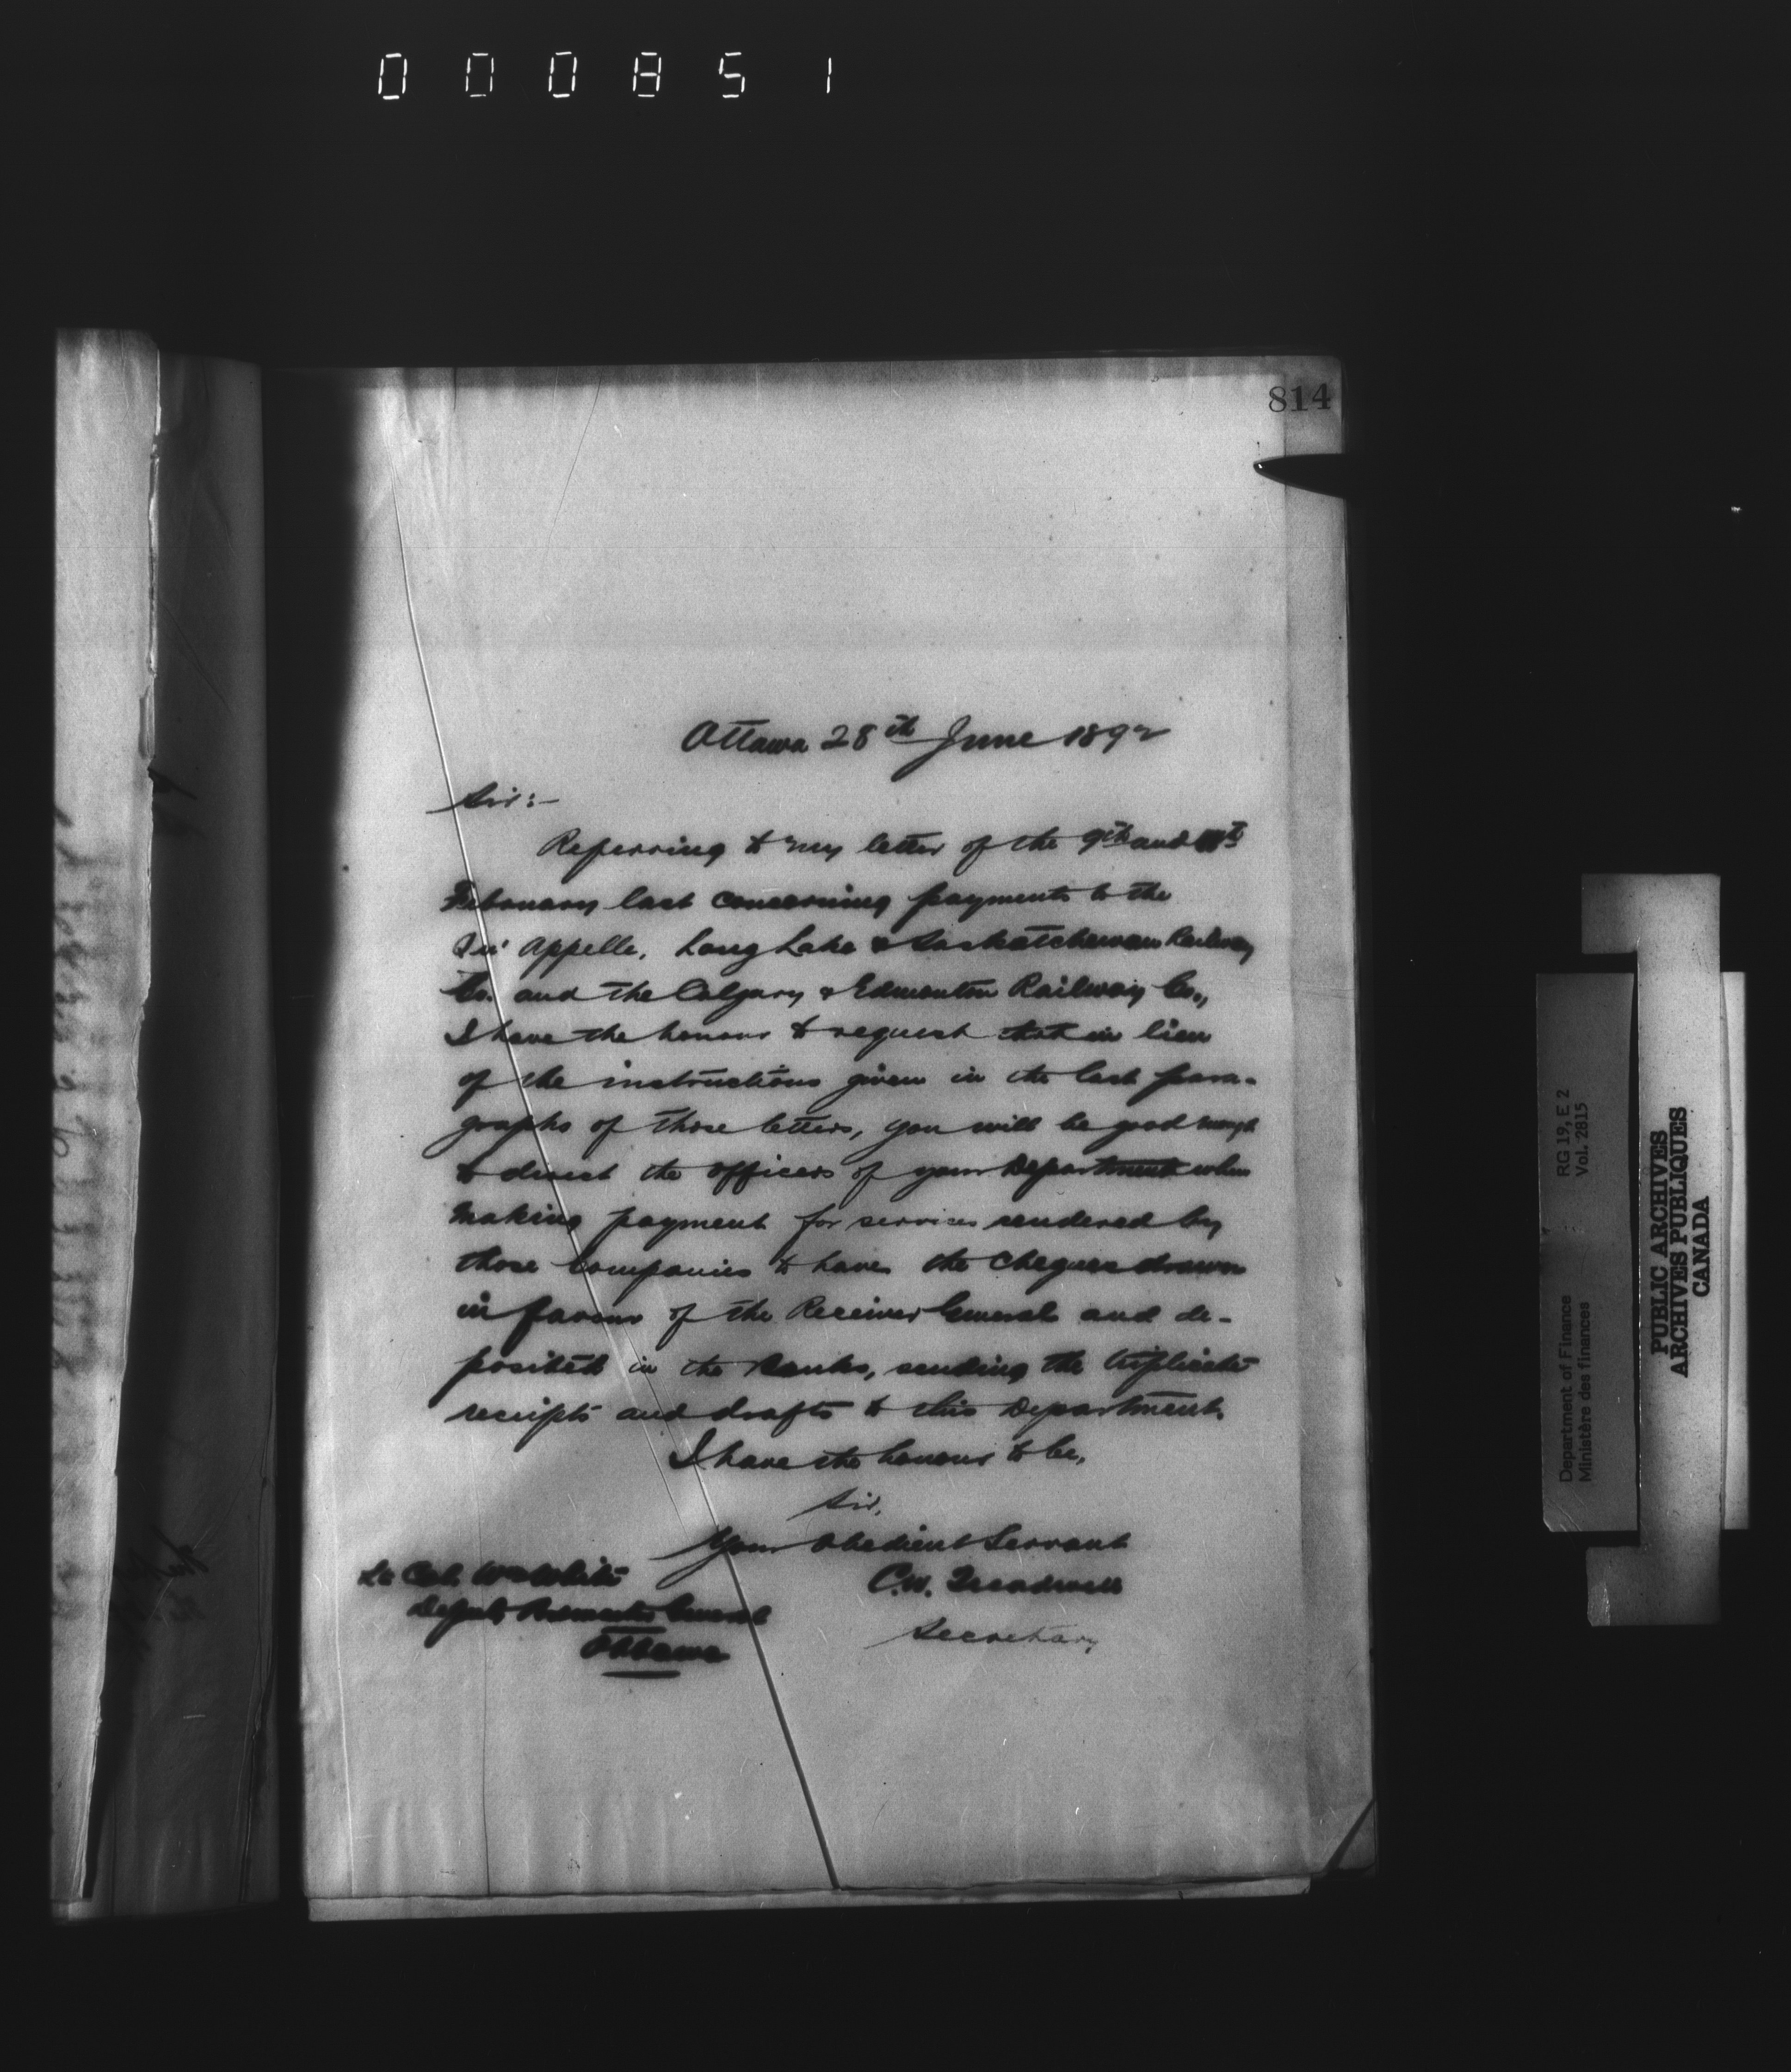 000851
814
Ottawa 28th June 1892
Sir:—
Referring to my letter of the 9th and
February last concerning payments to the
Qu'Appelle, Long Lake & Saskatchewan Railway
Co. and the Calgary & Edmonton Railway Co.,
I have the honour to request that in lieu
of the instructions given in the last para-
graphs of those letters, you will be good enough
to direct the officers of your Department when
making payment for services rendered by
those Companies to have the cheques drawn
in favour of the Receiver General and de-
posited in the Banks, sending the triplicate
receipts and drafts to this Department.
I have the honour to be,
Sir,
Your Obedient Servant
C.W. Treadwell
Secretary
Lt Col. W White
Deputy Postmaster General
Ottawa
RG 19, E 2
Vol. 2815
Department of Finance
Ministère des finances
PUBLIC ARCHIVES
ARCHIVES PUBLIQUES
CANADA